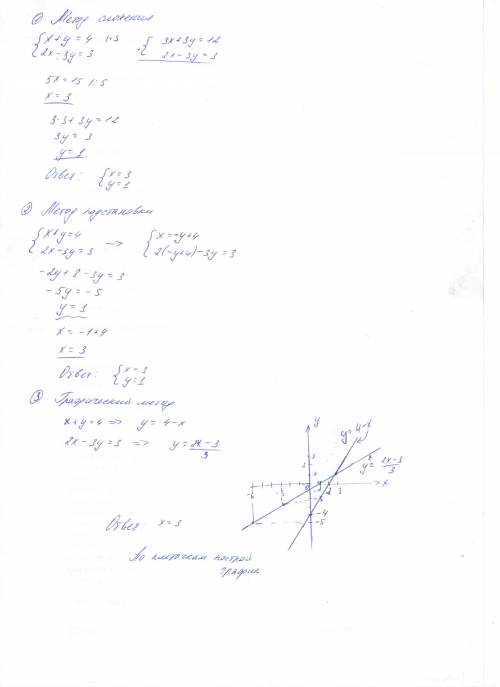 ① Метод сложения
{ x+y=4 |·3    + { 3x+3y=12
{ 2x-3y=3    { 2x-3y=3
5x=15 |:5
x=3
3·3+3y=12
3y=3
y=1
Ответ: { x=3
{ y=1
② Метод подстановки
{ x+y=4 → { x=-y+4
{ 2x-3y=3    { 2(-y+4)-3y=3
-2y+8-3y=3
-5y=-5
y=1
x=-1+4
x=3
Ответ: { x=3
{ y=1
③ Графический метод
x+y=4 => y=4-x
2x-3y=3 => y=2x-3/3
y
y=4-x
y=2x-3/3
x
0
2
3
-4
-5
Ответ x=3
По клеточкам построй
график